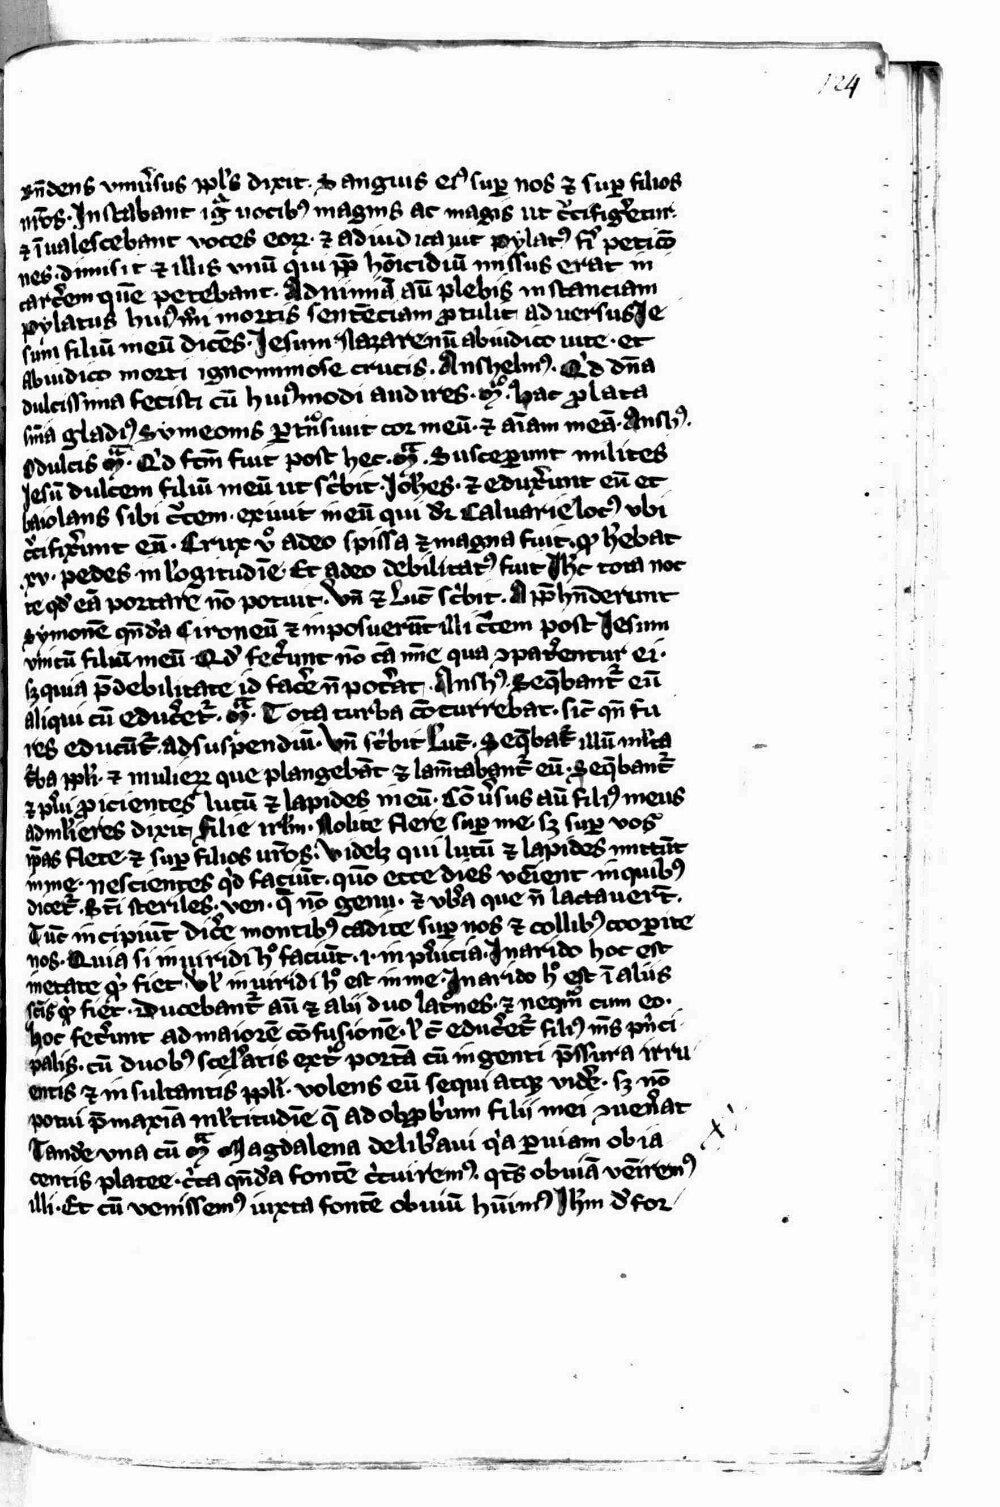 124
rn̄dens vniũsus ppl's dixit. Sanguis eiꝰ sup̱ nos ⁊ sup̱ filios
nr̄os. Instabant igͥ uocibꝫ magnis ac magis ut cͬcifigͤetur.
⁊ īualescebant voces eoꝝ. ⁊ adiudicauit pylatꝰ fiͥ peticō
nes. dimisit ⁊ illis vnū qui pp̄ hōicidiū missus erat in
carcͤem quē petebant. Ad nimiā aū plebis instanciam
pylatus huiꝰmͦi mortis sentēciam ꝓtulit aduersus Ie
sum filiū meū dicēs. Iesum Nazarenū abiudico uite. et
abiudico morti ignominiose crucis. Anshelmꝰ. Qͥd dn̄a
dulcissima fecisti cū huiꝰmodi audires. mͣ. hac ꝓlata
sn̄ia gladiꝰ Symeonis ꝑtn̄siuit cor meū. ⁊ aīam meā. Anshꝰ.
O dulcis mͣ. Qͥd fcm̄ fuit post hec. mͣ. Susceꝑunt milites
Iesū dulcem filiū meū ut scͥbit. Ioh̄es. ⁊ eduxͤunt eū et
baiolans sibi cͬcem. exiuit in eū qui dr̄ Caluarie locꝰ vbi
cͬcifixͤunt eū. Crux vͦ adeo spissa ⁊ magna fuit. ꝙ hēbat
.xv. pedes in lōgitudīe. Et adeo debilitatꝰ fuit Ihc̄ tota noc
te qd̄ eā portare nō potuit. Vn̄ ⁊ Luc̄ scͥbit. App̄hn̄derunt
Symonē qn̄dā Cironeū ⁊ inposuerūt illi cͬcem post Iesum
vnicū filiū meū. Qd̄ fecͤunt nō cā mīe qua ꝯpatͤentur ei.
sꝫ quia p̄ debilitate id facͤe n̄ potͤat. Anshꝰ. Seqͣbantͬ eū
aliqui cū educͤetͬ. mͣ. Tota turba cōcurrebat. sic̄ qn̄ fu
res educūtͬ ad suspendiū. Vn̄ scͥbit Luc̄. Seqͣbatͬ illū ml̄ta
tͬba ppl̄i. ⁊ mulieꝝ que plangebāt ⁊ lam̄tabantͬ eū. Seqͣbantͬ
⁊ pͧui ꝓicientes lutū ⁊ lapides in eū. Cōuͤsus aū filiꝰ meus
ad ml̄ieres dixit. Filie irl̄m. Nolite flere sup̱ me. sꝫ sup̱ vos
ip̄as flete. ⁊ sup̱ filios ur̄os. Videtꝫ qui lutū ⁊ lapides mittūt
in me. nescientes qͥd faciūt. qm̄ ecce dies veīent in quibꝰ
dicetͬ. Bt̄i steriles. ven. qͤ nō genu. ⁊ vbͤa que n̄ lactauerūt.
Tūc incipiūt dicͤe montibꝰ cadite sup̱ nos ⁊ collibꝰ cooꝑite
nos. Quia si in uiridi hͦ faciūt. i. in pͧicia. In arido hoc est
in etate qͥd fiet. Vl̄ in uiridi hͦ est in me. In arido hͦ est ī aliis
sc̄is qͥd fiet. Ducebantͬ aū ⁊ alij duo latͦnes. ⁊ neqͣm cum eo.
hoc fecͤunt ad maiorē cōfusionē. Vl̄ c̄ educͤetͬ filiꝰ ms̄ pͥnci
palis. cū duobꝰ scelͤatis extͣ portā cū ingenti p̄ssura irru
entis ⁊ insultantis ppl̄i. volens eū sequi atqꝫ videͤ. sꝫ nō
potui p̄ maxīa ml̄titudīe qͤ ad obꝓbͥum filii mei ꝯuenͤat
Tandē vna cū mͣ Magdalena delibͤaui qͥa ꝑ uiam ob ia
centis platee. cͥca qn̄dā fontē cͥcuiremꝰ. qͣt̄s obuiā veīremꝰ
illi. Et cū venissemꝰ iuxta fontē obuiū hūimꝰ Ihm̄ d̄for